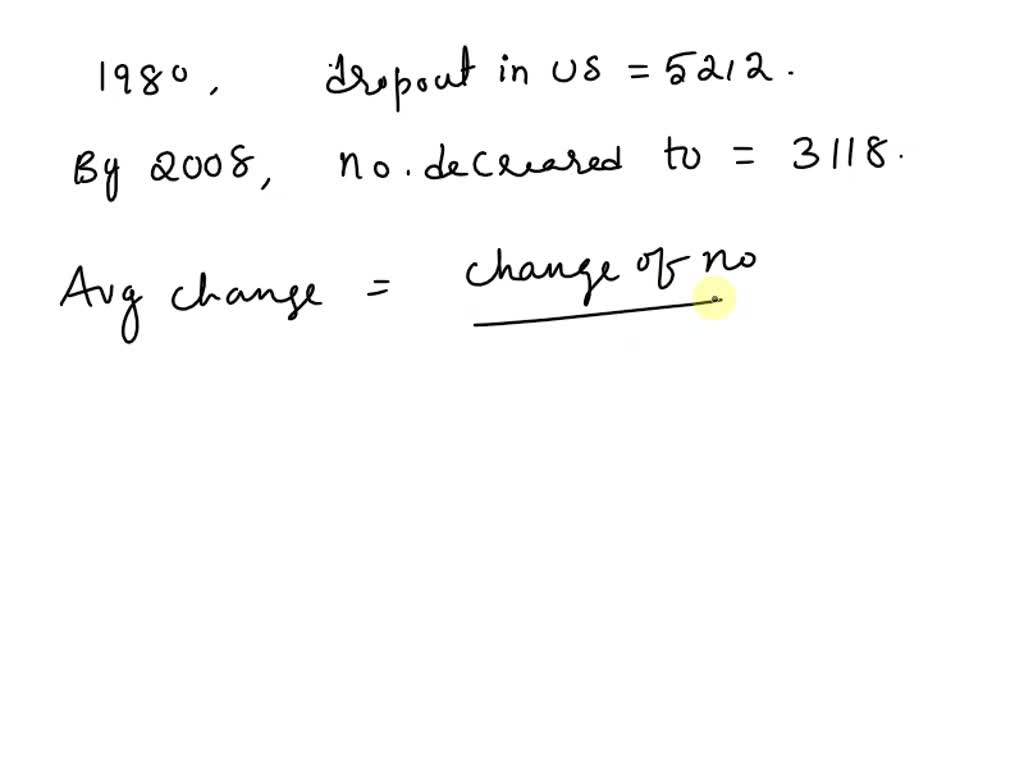 1980, dropout in US = 5212.
By 2008, no. decreared to = 3118.
Avg change = change of no